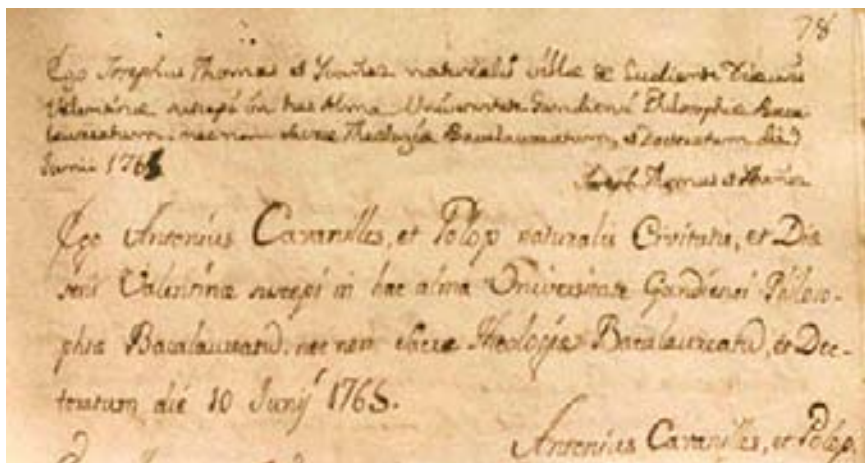 78
Ego Josephus Thomas et Ybañez naturalis villæ de Ludiente Diecesis
Valentinæ suscepi in hac Alma Universitate Gandiensi Philosophiæ Baca
laureatum: nec non sacræ Theologiæ Bacalaureatum, et Doctoratum die
Junii 1765
Joseph Thomas et Ybañez
Ego Antonius Cavanilles, et Pòlop naturalis Civitatis, et Diœ
sesis Valentinæ suscepi in hac alma Universitate Gandiensi Philoso-
phiæ Bacalaureatū. nec non sacræ Theologiæ Bacalaureatū, et Doc-
toratum die 10 Junij 1765.
Antonius Cavanilles, et Pòlop.